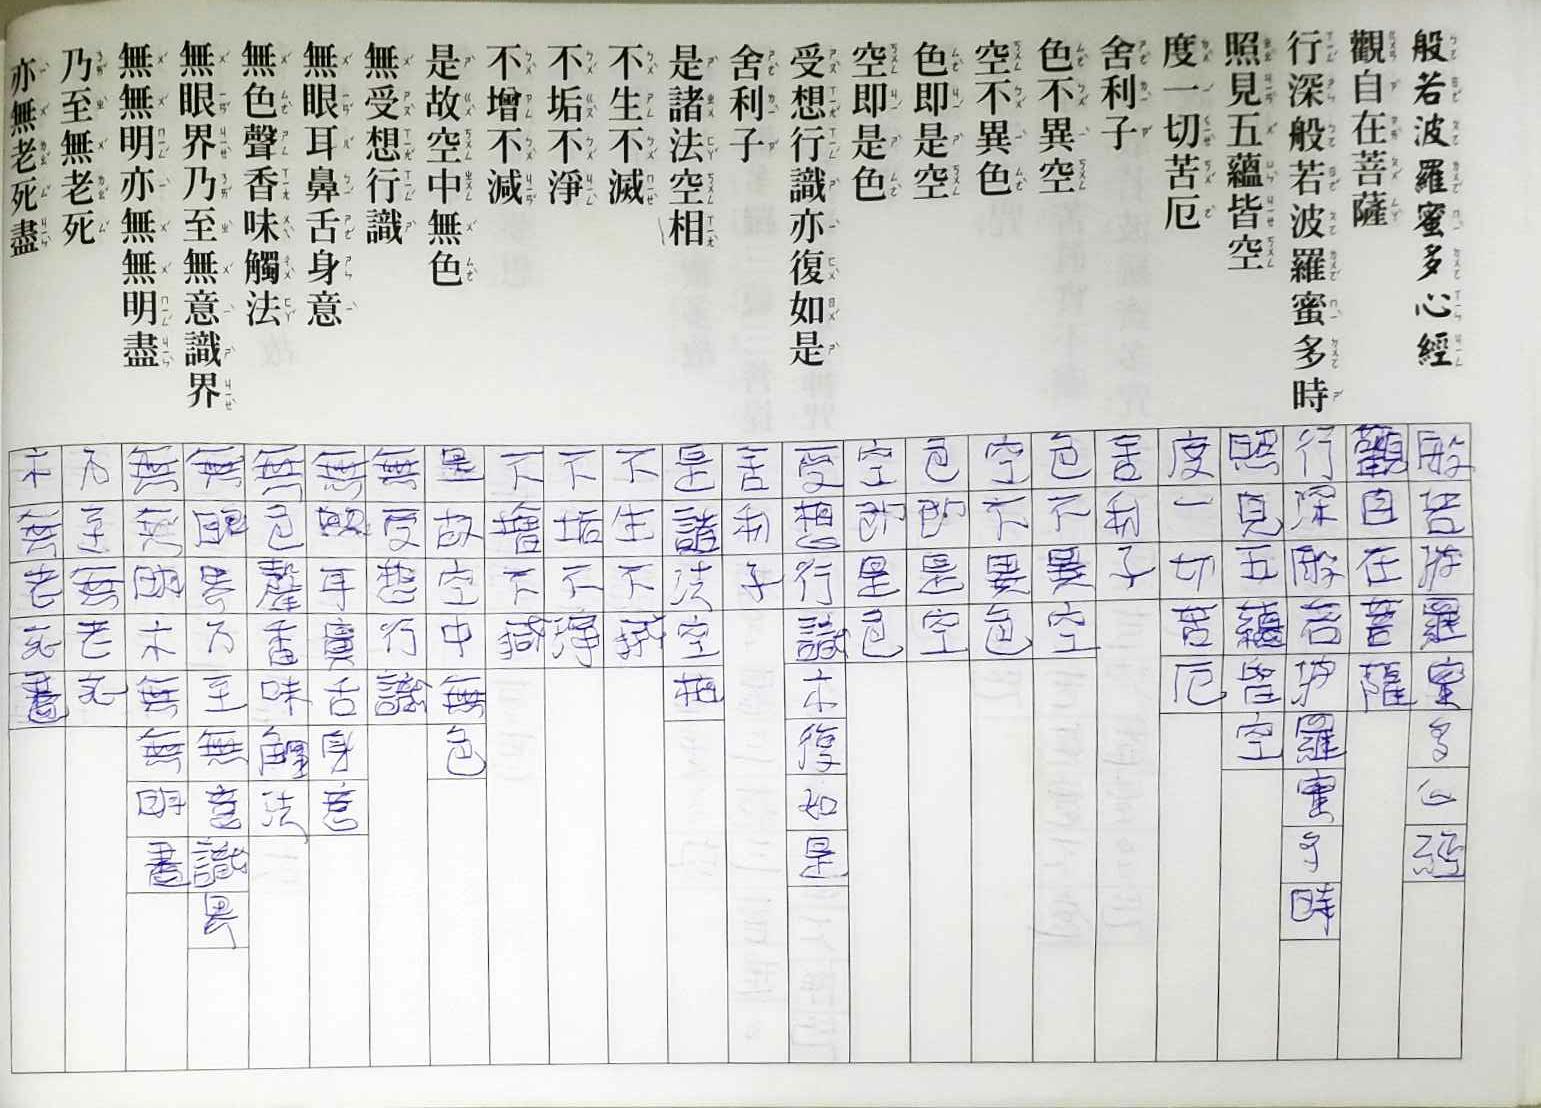 般若波羅蜜多心經
觀自在菩薩
行深般若波羅蜜多時
照見五蘊皆空
度一切苦厄
舍利子
色不異空
空不異色
色即是空
空即是色
受想行識亦復如是
舍利子
是諸法空相
不生不滅
不垢不淨
不增不減
是故空中無色
無受想行識
無眼耳鼻舌身意
無色聲香味觸法
無眼界乃至無意識界
無無明亦無無明盡
乃至無老死
亦無老死盡
般若波羅蜜多心經
觀自在菩薩
行深般若波羅蜜多時
照見五蘊皆空
度一切苦厄
舍利子
色不異空
空不異色
色即是空
空即是色
受想行識亦復如是
舍利子
是諸法空相
不生不滅
不垢不淨
不增不減
是故空中無色
無受想行識
無眼耳鼻舌身意
無色聲香味觸法
無眼界乃至無意識界
無無明亦無無明盡
乃至無老死
亦無老死盡